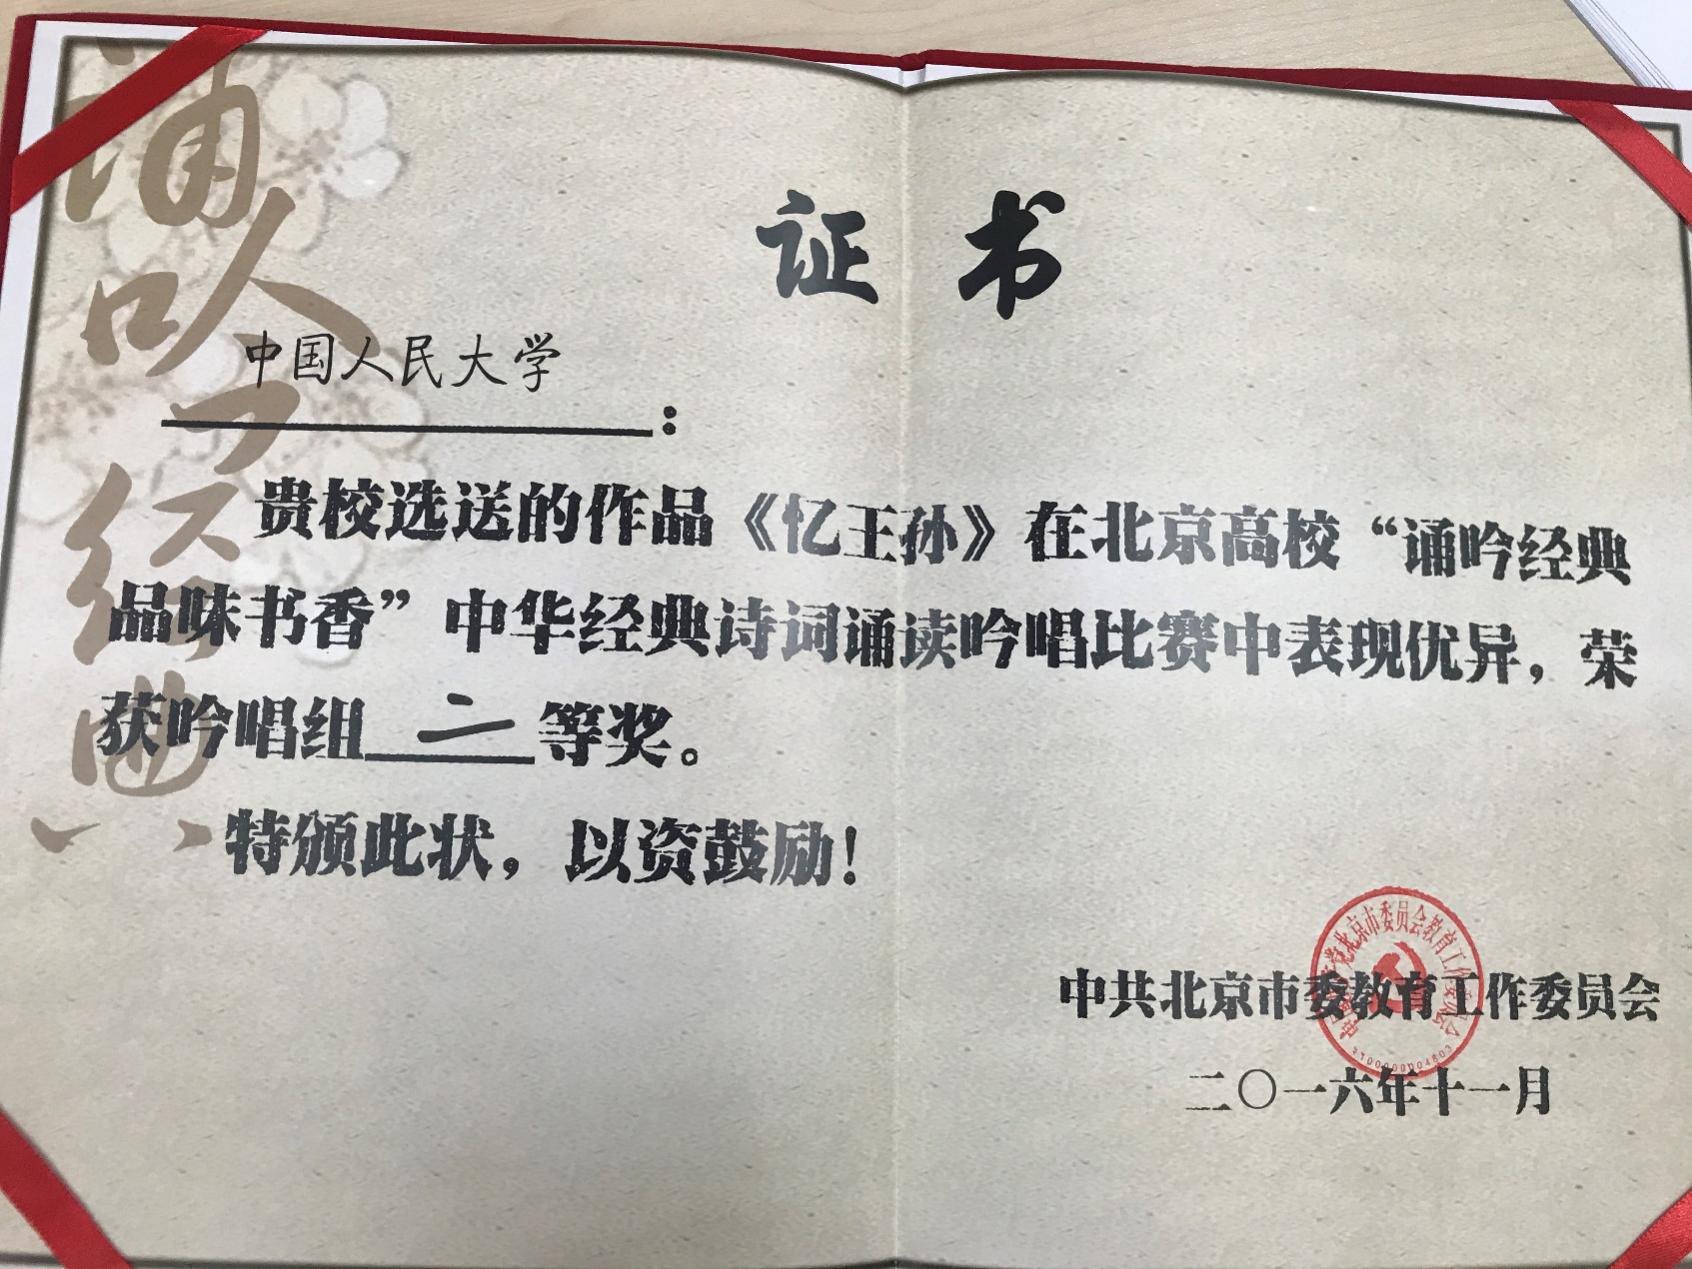 诵吟经典
证书
中国人民大学:
贵校选送的作品《忆王孙》在北京高校“诵吟经典
品味书香”中华经典诗词诵读吟唱比赛中表现优异，荣
获吟唱组二等奖。
特颁此状，以资鼓励！
中共北京市委教育工作委员会
二〇一六年十一月